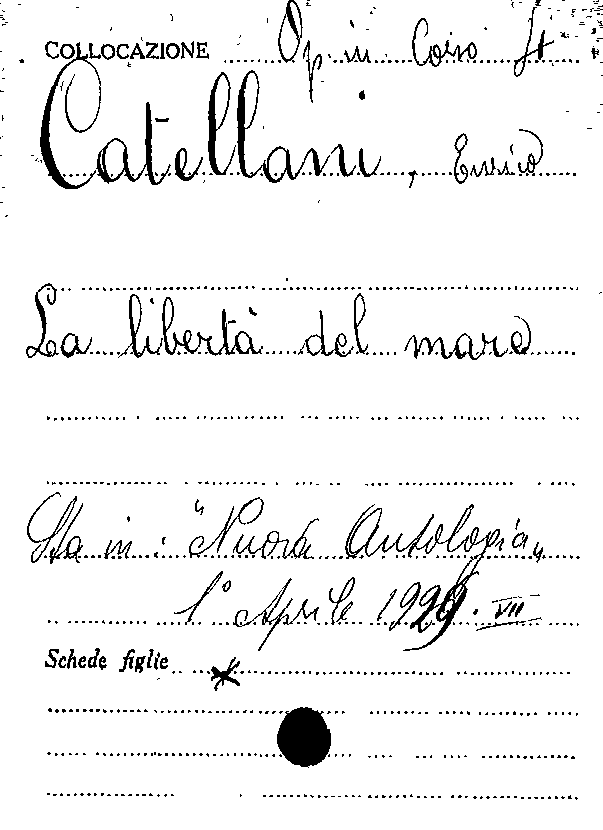 COLLOCAZIONE Op. in Corso St
Catellani, Enrico
La libertà del mare
Sta in: "Nuova Antologia„
1° Aprile 1929. VII
Schede figlie x